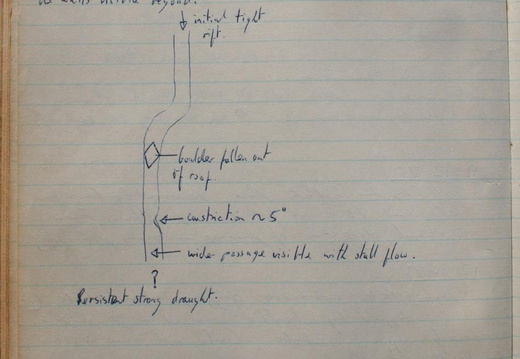 walls visible beyond.
initial tight
rift.
boulder fallen out
of roof.
constriction ~ 5"
wider passage visible with stall flow.
?
Persistent strong draught.